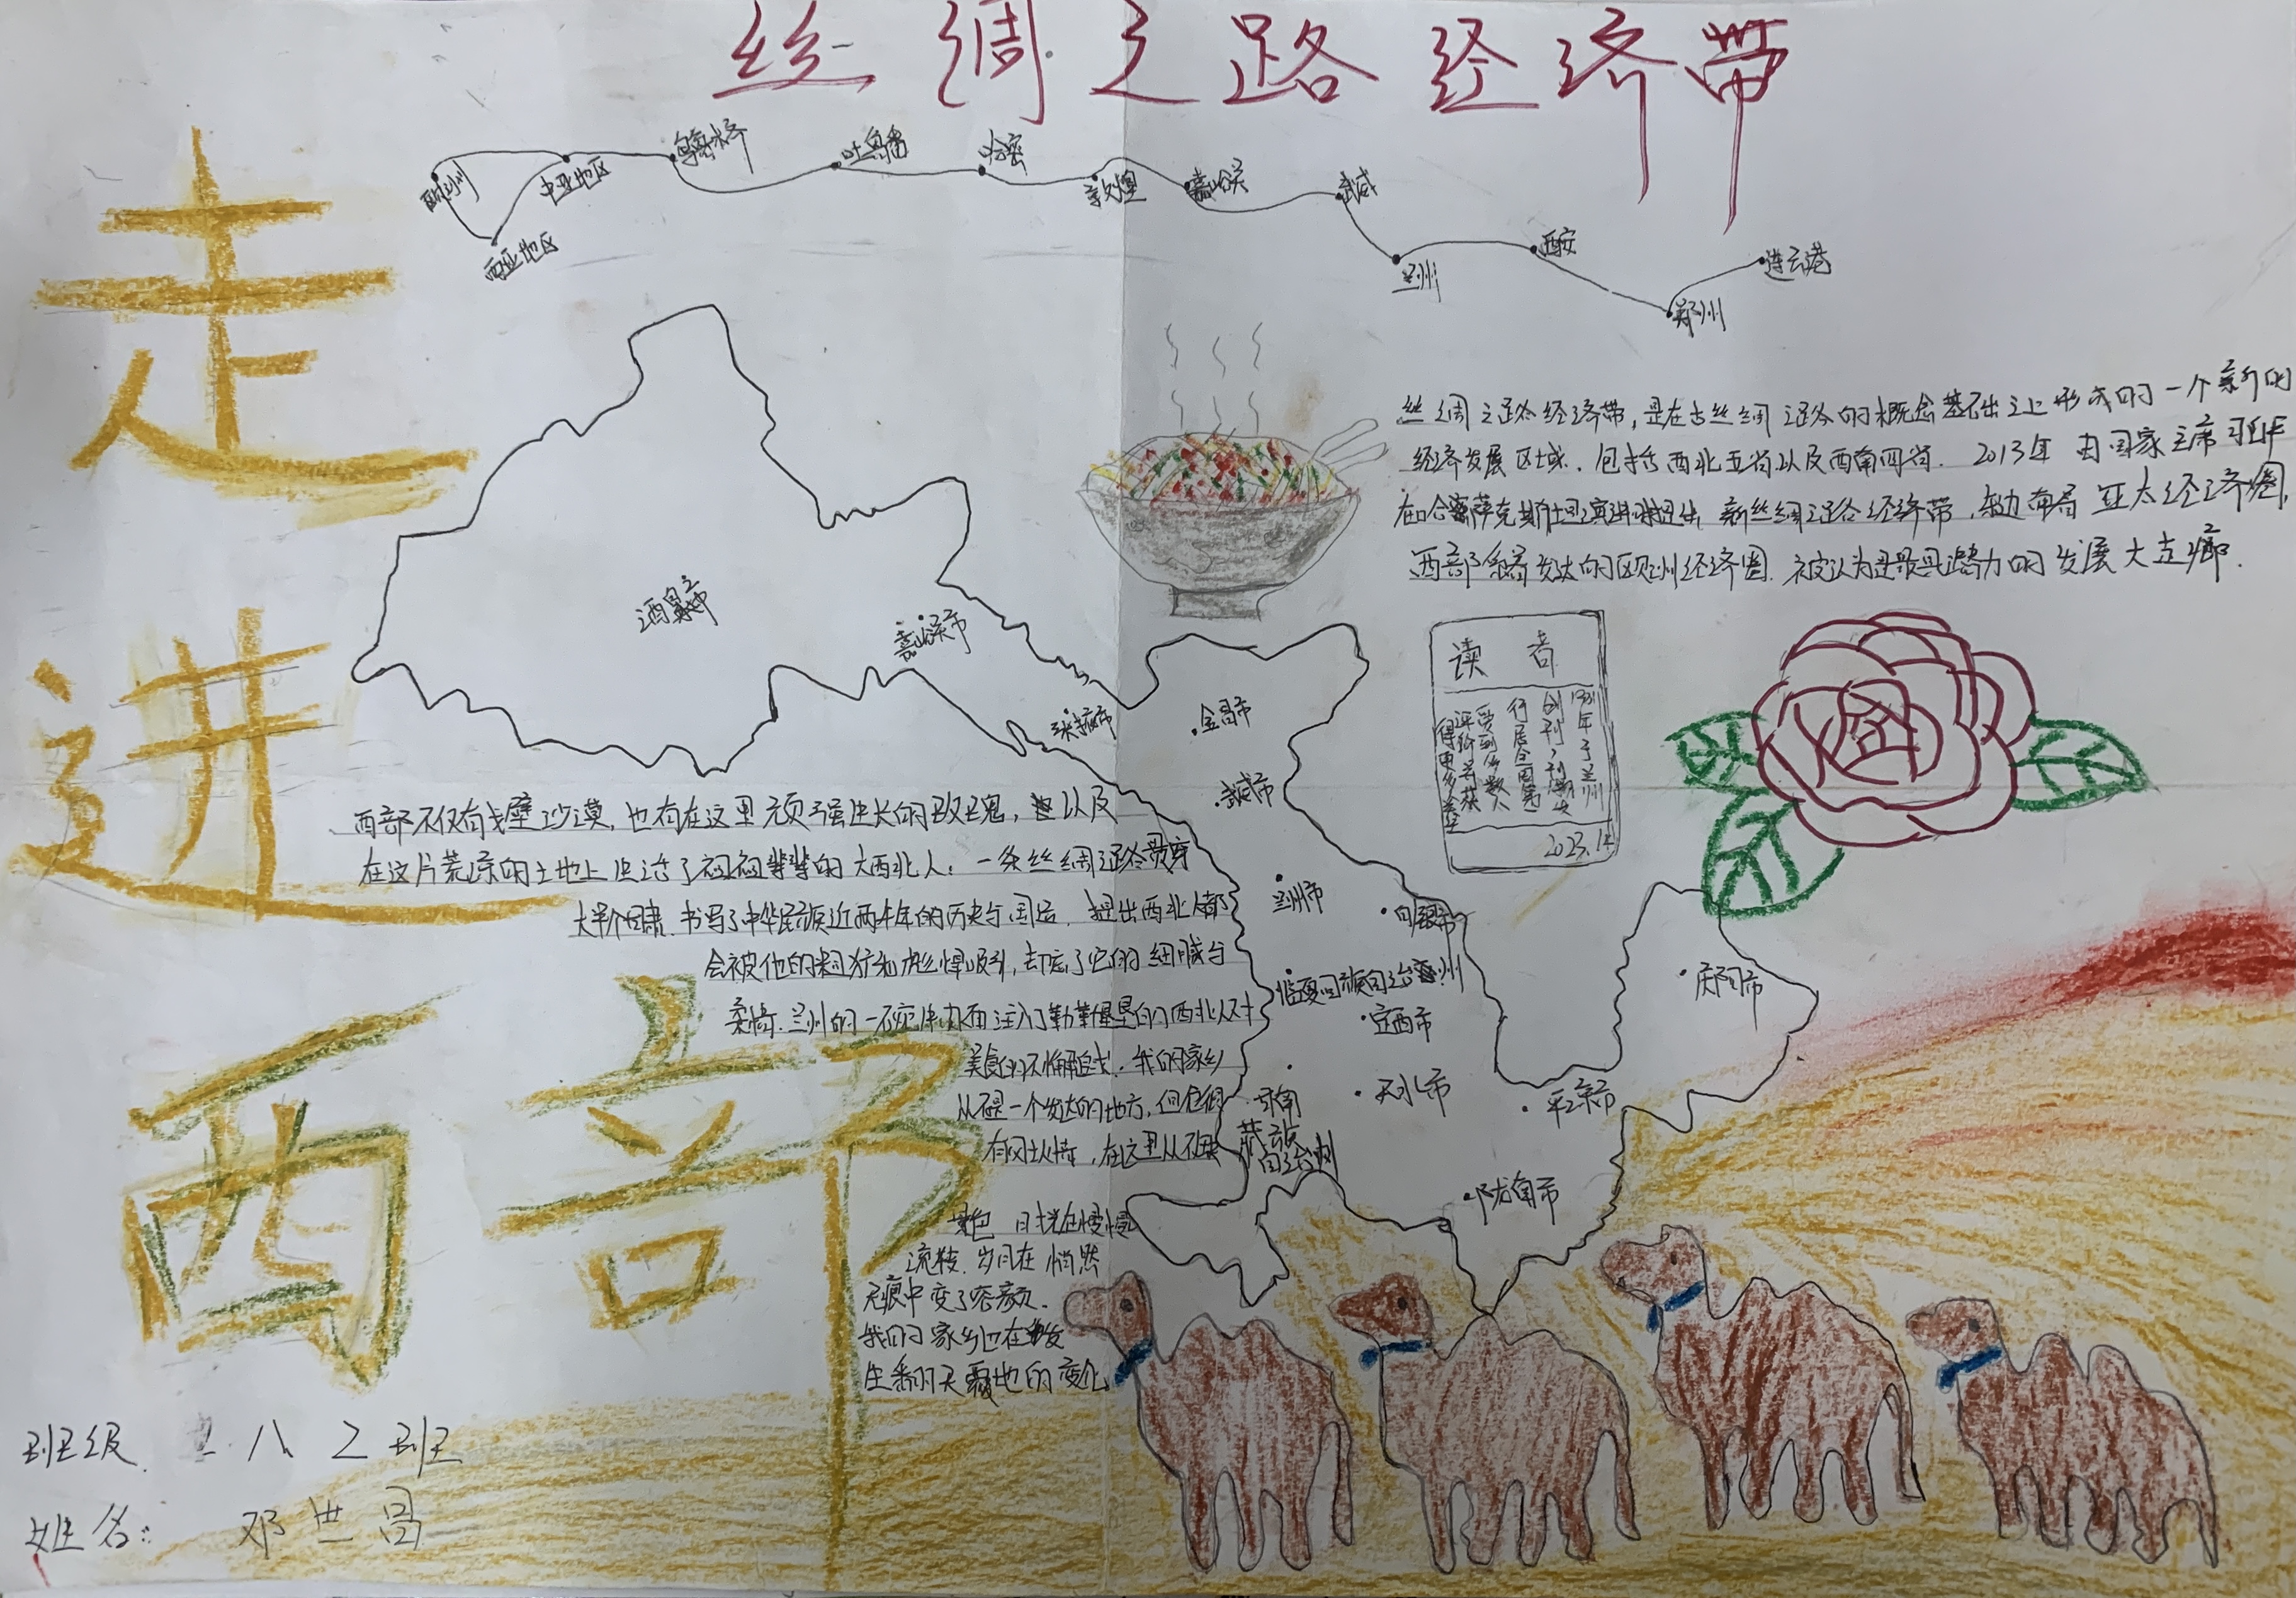 丝绸之路经济带
走进西部
欧洲
中亚地区
西亚地区
乌鲁木齐
吐鲁番
哈密
敦煌
嘉峪关
武威
兰州
西安
郑州
连云港
丝绸之路经济带,是在古丝绸之路的概念基础之上形成的一个新的
经济发展区域。包括西北五省以及西南四省。2013年由国家主席习近平
在哈萨克斯坦演讲时提出 新丝绸之路经济带,东边布局亚太经济圈,
西部系着发达的欧洲经济圈。被认为是最具潜力的发展大走廊。
酒泉市
嘉峪关市
张掖市
金昌市
武威市
兰州市
白银市
临夏回族自治州
定西市
天水市
平凉市
庆阳市
陇南市
甘南
藏族
自治州
读者
1981年于兰州
创刊,刊期发
行居全国第一
受到多数人
评价并获
得更多
2023.12
西部不仅有戈壁沙漠,也有在这里顽强生长的玫瑰,以及
在这片荒凉的土地上生活了祖祖辈辈的大西北人。一条丝绸之路贯穿
大半个甘肃 书写了中华民族近两千年的历史与国运 提出西北人都
会被他的粗犷和彪悍吸引,却忘了它的细腻与
柔情。兰州的一碗牛肉面注入了勤勤恳恳的西北人对
美食的不懈追求。我的家乡
从不是一个发达的地方,但它很
有风土人情,在这里从不缺
景色 时光在慢慢
流转,岁月在悄然
无痕中变了容颜。
我的家乡也在发
生翻天覆地的变化
班级 八2班
姓名: 邓世昌